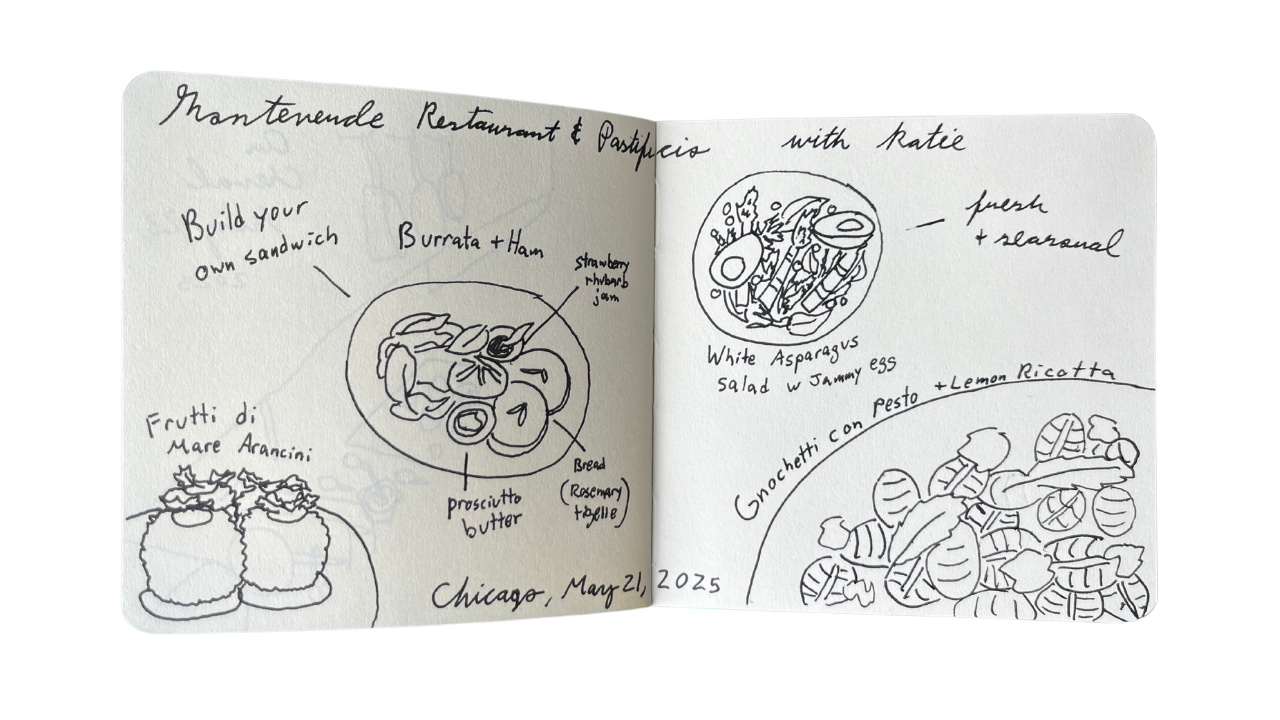 Monteverde Restaurant & Pastificio with Katie
Build your
own sandwich
Burrata + Ham
strawberry
rhubarb
jam
prosciutto
butter
Bread
(Rosemary
tigelle)
Frutti di
Mare Arancini
Chicago, May 21, 2025
fresh
+ seasonal
White Asparagus
salad w Jammy egg
Gnochetti con pesto + Lemon Ricotta